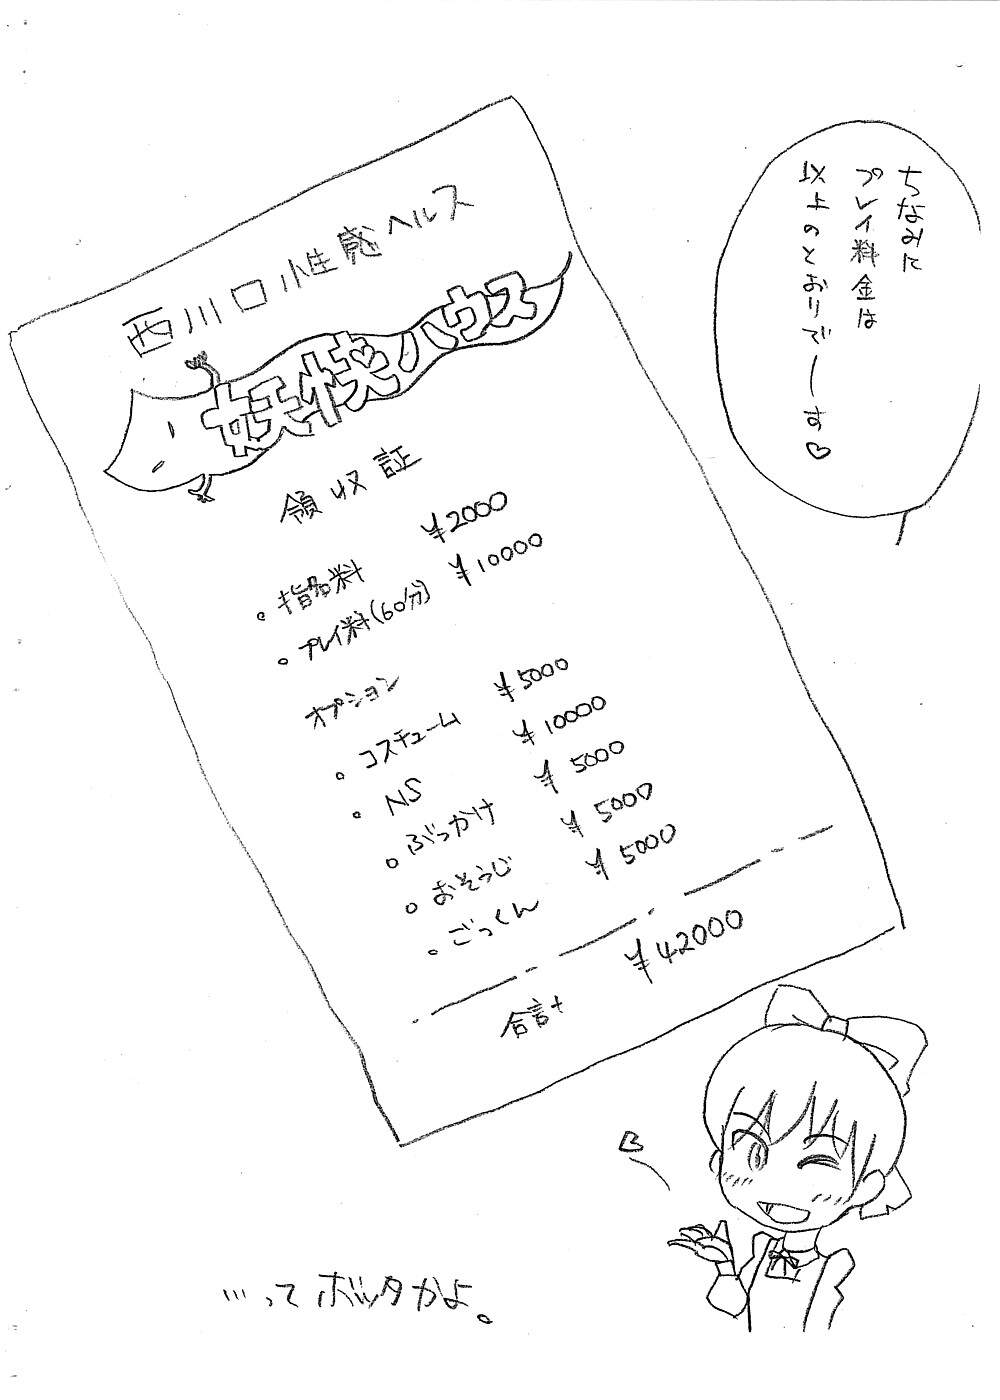 ちなみに
プレイ料金は
以上のとおりでーす♡
西川口性感ヘルス
妖快ハウス
領収証
。指名料 ¥2000
。プレイ料(60分) ¥10000
オプション
。コスチューム ¥5000
。NS ¥10000
。ぶっかけ ¥5000
。おそうじ ¥5000
。ごっくん ¥5000
合計 ¥42000
…ってボッタかよ。